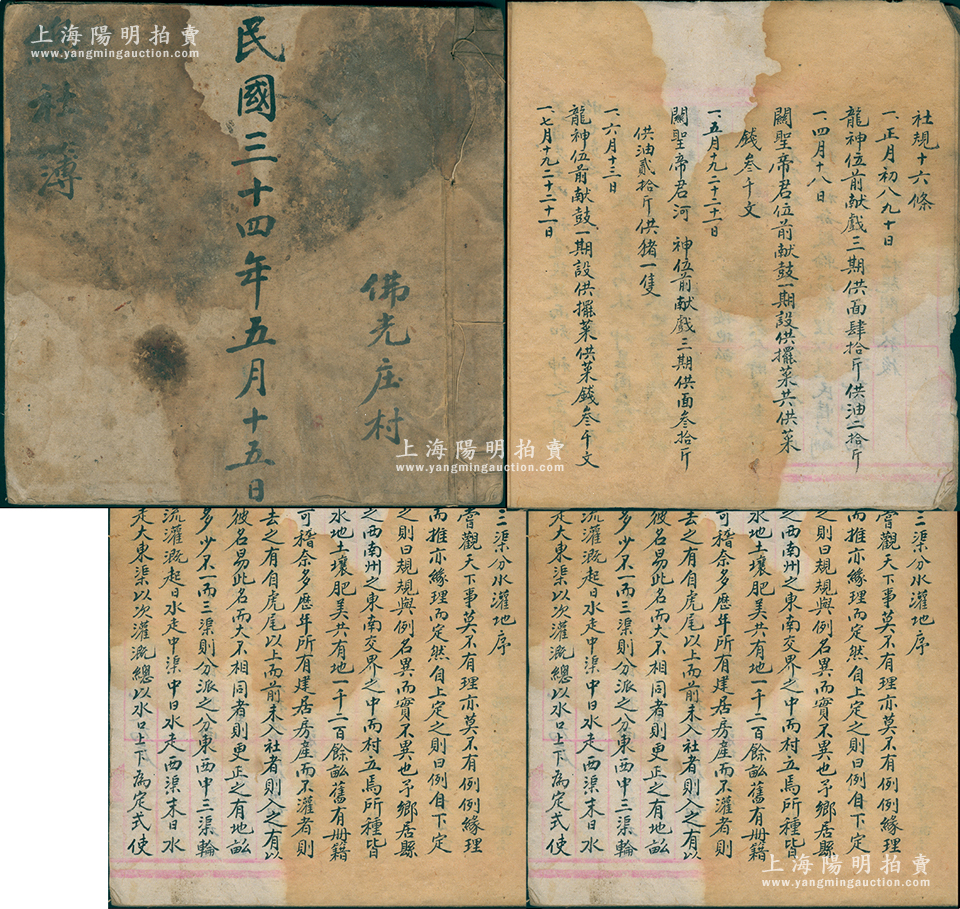 上海陽明拍賣
www.yangmingauction.com
佛光庄村
民國三十四年五月十五日
社簿
社規十六條
一、正月初八九十日
龍神位前献戲三期供面肆拾斤供油二拾斤
一、四月十八日
關聖帝君位前献鼓一期設供擺菜共供菜
錢叁千文
一、五月十九二十二十一日
關聖帝君河 神位前献戲三期供面叁拾斤
供油貳拾斤供猪一隻
一、六月十三日
龍神位前献鼓一期設供擺菜供菜錢叁千文
一、七月十九二十二十一日
上海陽明拍賣
www.yangmingauction.com
三渠分水灌地序
嘗觀天下事莫不有理亦莫不有例例緣理
而推亦緣理而定然自上定之則曰例自下定
之則曰規規與例名異而實不異也予鄉居縣
之西南州之東南交界之中而村立焉所種皆
水地土壤肥美共有地一千二百餘畝舊有册籍
可稽奈多歷年所有建居房產而不灌者則
去之有自虎尾以上而前未入社者則入之有以
彼名易此名而大不相同者則更正之有地畝
多少不一而三渠則分派之分東西中三渠輪
流灌溉起日水走中渠中日水走西渠末日水
走大東渠以次灌溉總以水口上下為定式使
三渠分水灌地序
嘗觀天下事莫不有理亦莫不有例例緣理
而推亦緣理而定然自上定之則曰例自下定
之則曰規規與例名異而實不異也予鄉居縣
之西南州之東南交界之中而村立焉所種皆
水地土壤肥美共有地一千二百餘畝舊有册籍
可稽奈多歷年所有建居房產而不灌者則
去之有自虎尾以上而前未入社者則入之有以
彼名易此名而大不相同者則更正之有地畝
多少不一而三渠則分派之分東西中三渠輪
流灌溉起日水走中渠中日水走西渠末日水
走大東渠以次灌溉總以水口上下為定式使
上海陽明拍賣
www.yangmingauction.com